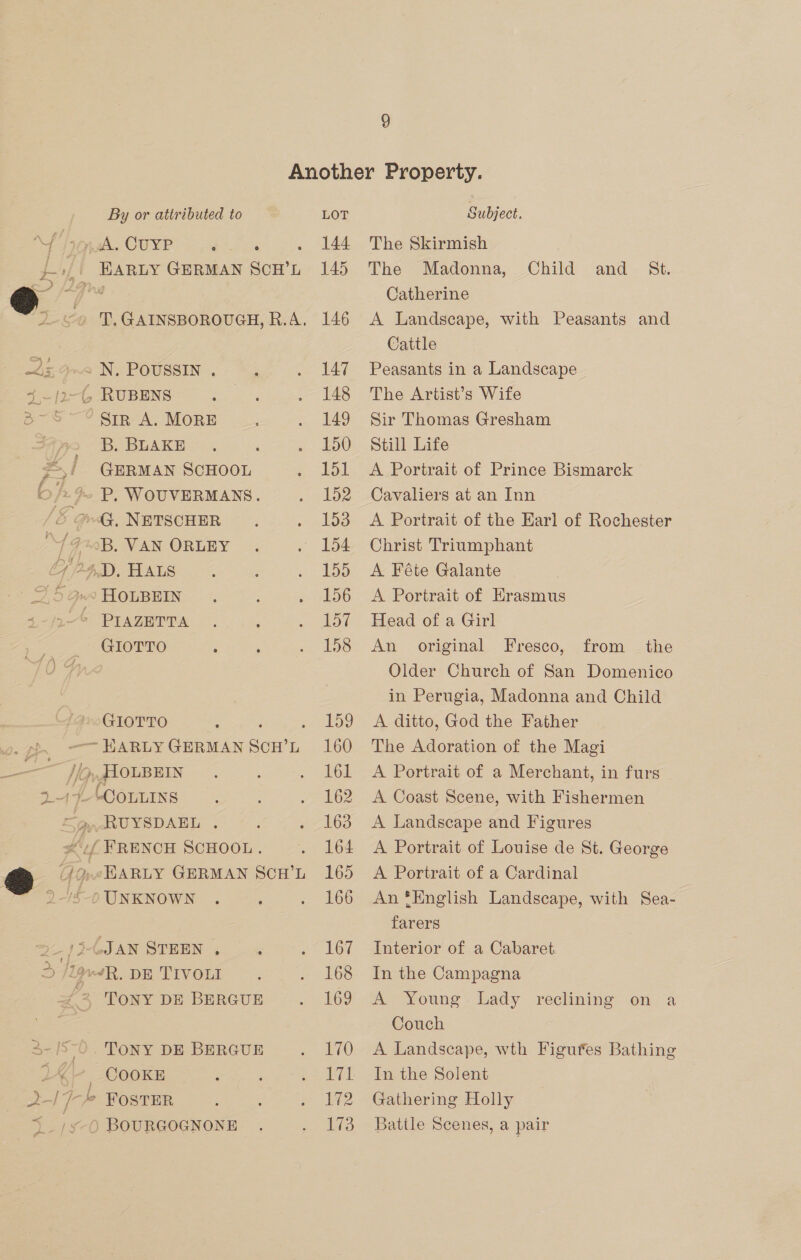 9
Another Property.
By or attributed to LOT Subject.
A. CUYP . . . 144 The Skirmish
EARLY GERMAN SCH'L 145 The Madonna, Child and St.
Catherine
T. GAINSBOROUGH, R.A. 146 A Landscape, with Peasants and
Cattle
N. POUSSIN . . . 147 Peasants in a Landscape
RUBENS . . . 148 The Artist's Wife
SIR A. MORE . . 149 Sir Thomas Gresham
B. BLAKE . . . 150 Still Life
GERMAN SCHOOL . 151 A Portrait of Prince Bismarck
P. WOUVERMANS. . 152 Cavaliers at an Inn
G. NETSCHER . . 153 A Portrait of the Earl of Rochester
B. VAN ORLEY . . 154 Christ Triumphant
D. HALS . . . 155 A Féte Galante
HOLBEIN . . . 156 A Portrait of Erasmus
PIAZETTA . . . 157 Head of a Girl
GIOTTO . . . 158 An original Fresco, from the
Older Church of San Domenico
in Perugia, Madonna and Child
GIOTTO . . . 159 A ditto, God the Father
EARLY GERMAN SCH'L 160 The Adoration of the Magi
HOLBEIN . . . 161 A Portrait of a Merchant, in furs
COLLINS . . . 162 A Coast Scene, with Fishermen
RUYSDAEL . . . 163 A Landscape and Figures
FRENCH SCHOOL. . 164 A Portrait of Louise de St. George
EARLY GERMAN SCH'L 165 A Portrait of a Cardinal
UNKNOWN . . . 166 An English Landscape, with Sea-
farers
JAN STEEN . . . 167 Interior of a Cabaret
R. DE TIVOLI . . 168 In the Campagna
TONY DE BERGUE . 169 A Young Lady reclining on a
Couch
TONY DE BERGUE . 170 A Landscape, wth Figures Bathing
COOKE . . . 171 In the Solent
FOSTER . . . 172 Gathering Holly
BOURGOGNONE . . 173 Battle Scenes, a pair